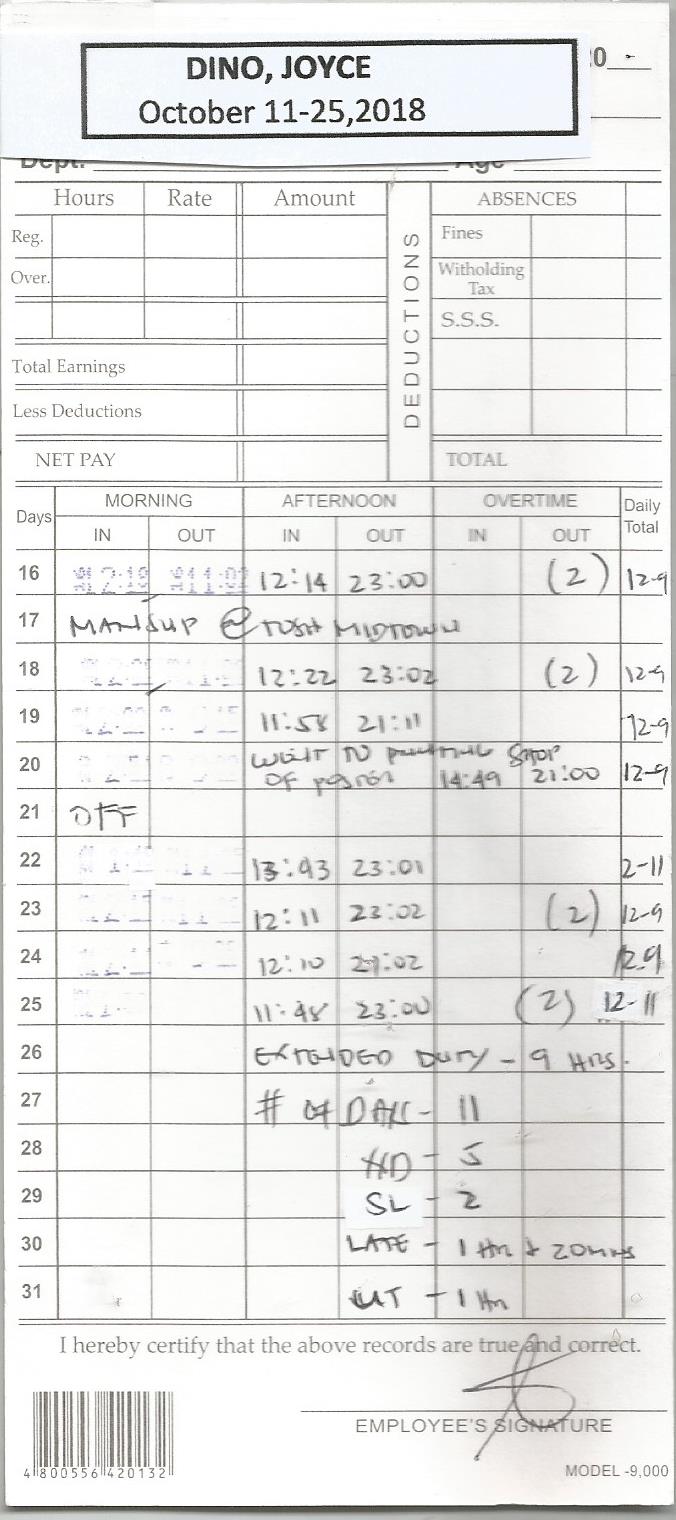 DINO, JOYCE
October 11-25,2018
0
Dept. Age
Hours Rate Amount DEDUCTIONS ABSENCES
Reg. Fines
Over. Witholding Tax
S.S.S.
Total Earnings
Less Deductions
NET PAY TOTAL
Days MORNING AFTERNOON OVERTIME Daily Total
IN OUT IN OUT IN OUT
16 12:14 23:00 (2) 12-9
17 @ TOSH MIDTOWN
18 12:22 23:02 (2) 12-9
19 11:58 21:11 12-9
20 WENT TO PRINTING SHOP
OF 14:49 21:00 12-9
21 OFF
22 13:43 23:01 2-11
23 12:11 23:02 (2) 12-9
24 12:10 21:02 12.9
25 11:48 23:00 (2) 12-11
26 EXTENDED DUTY - 9 HRS.
27 # OF DAYS - 11
28 - 5
29 SL - 2
30 LATE - 1 Hr + 20mns
31 UT - 1 Hr
I hereby certify that the above records are true and correct.
EMPLOYEE'S SIGNATURE
4 800556 420132
MODEL -9,000